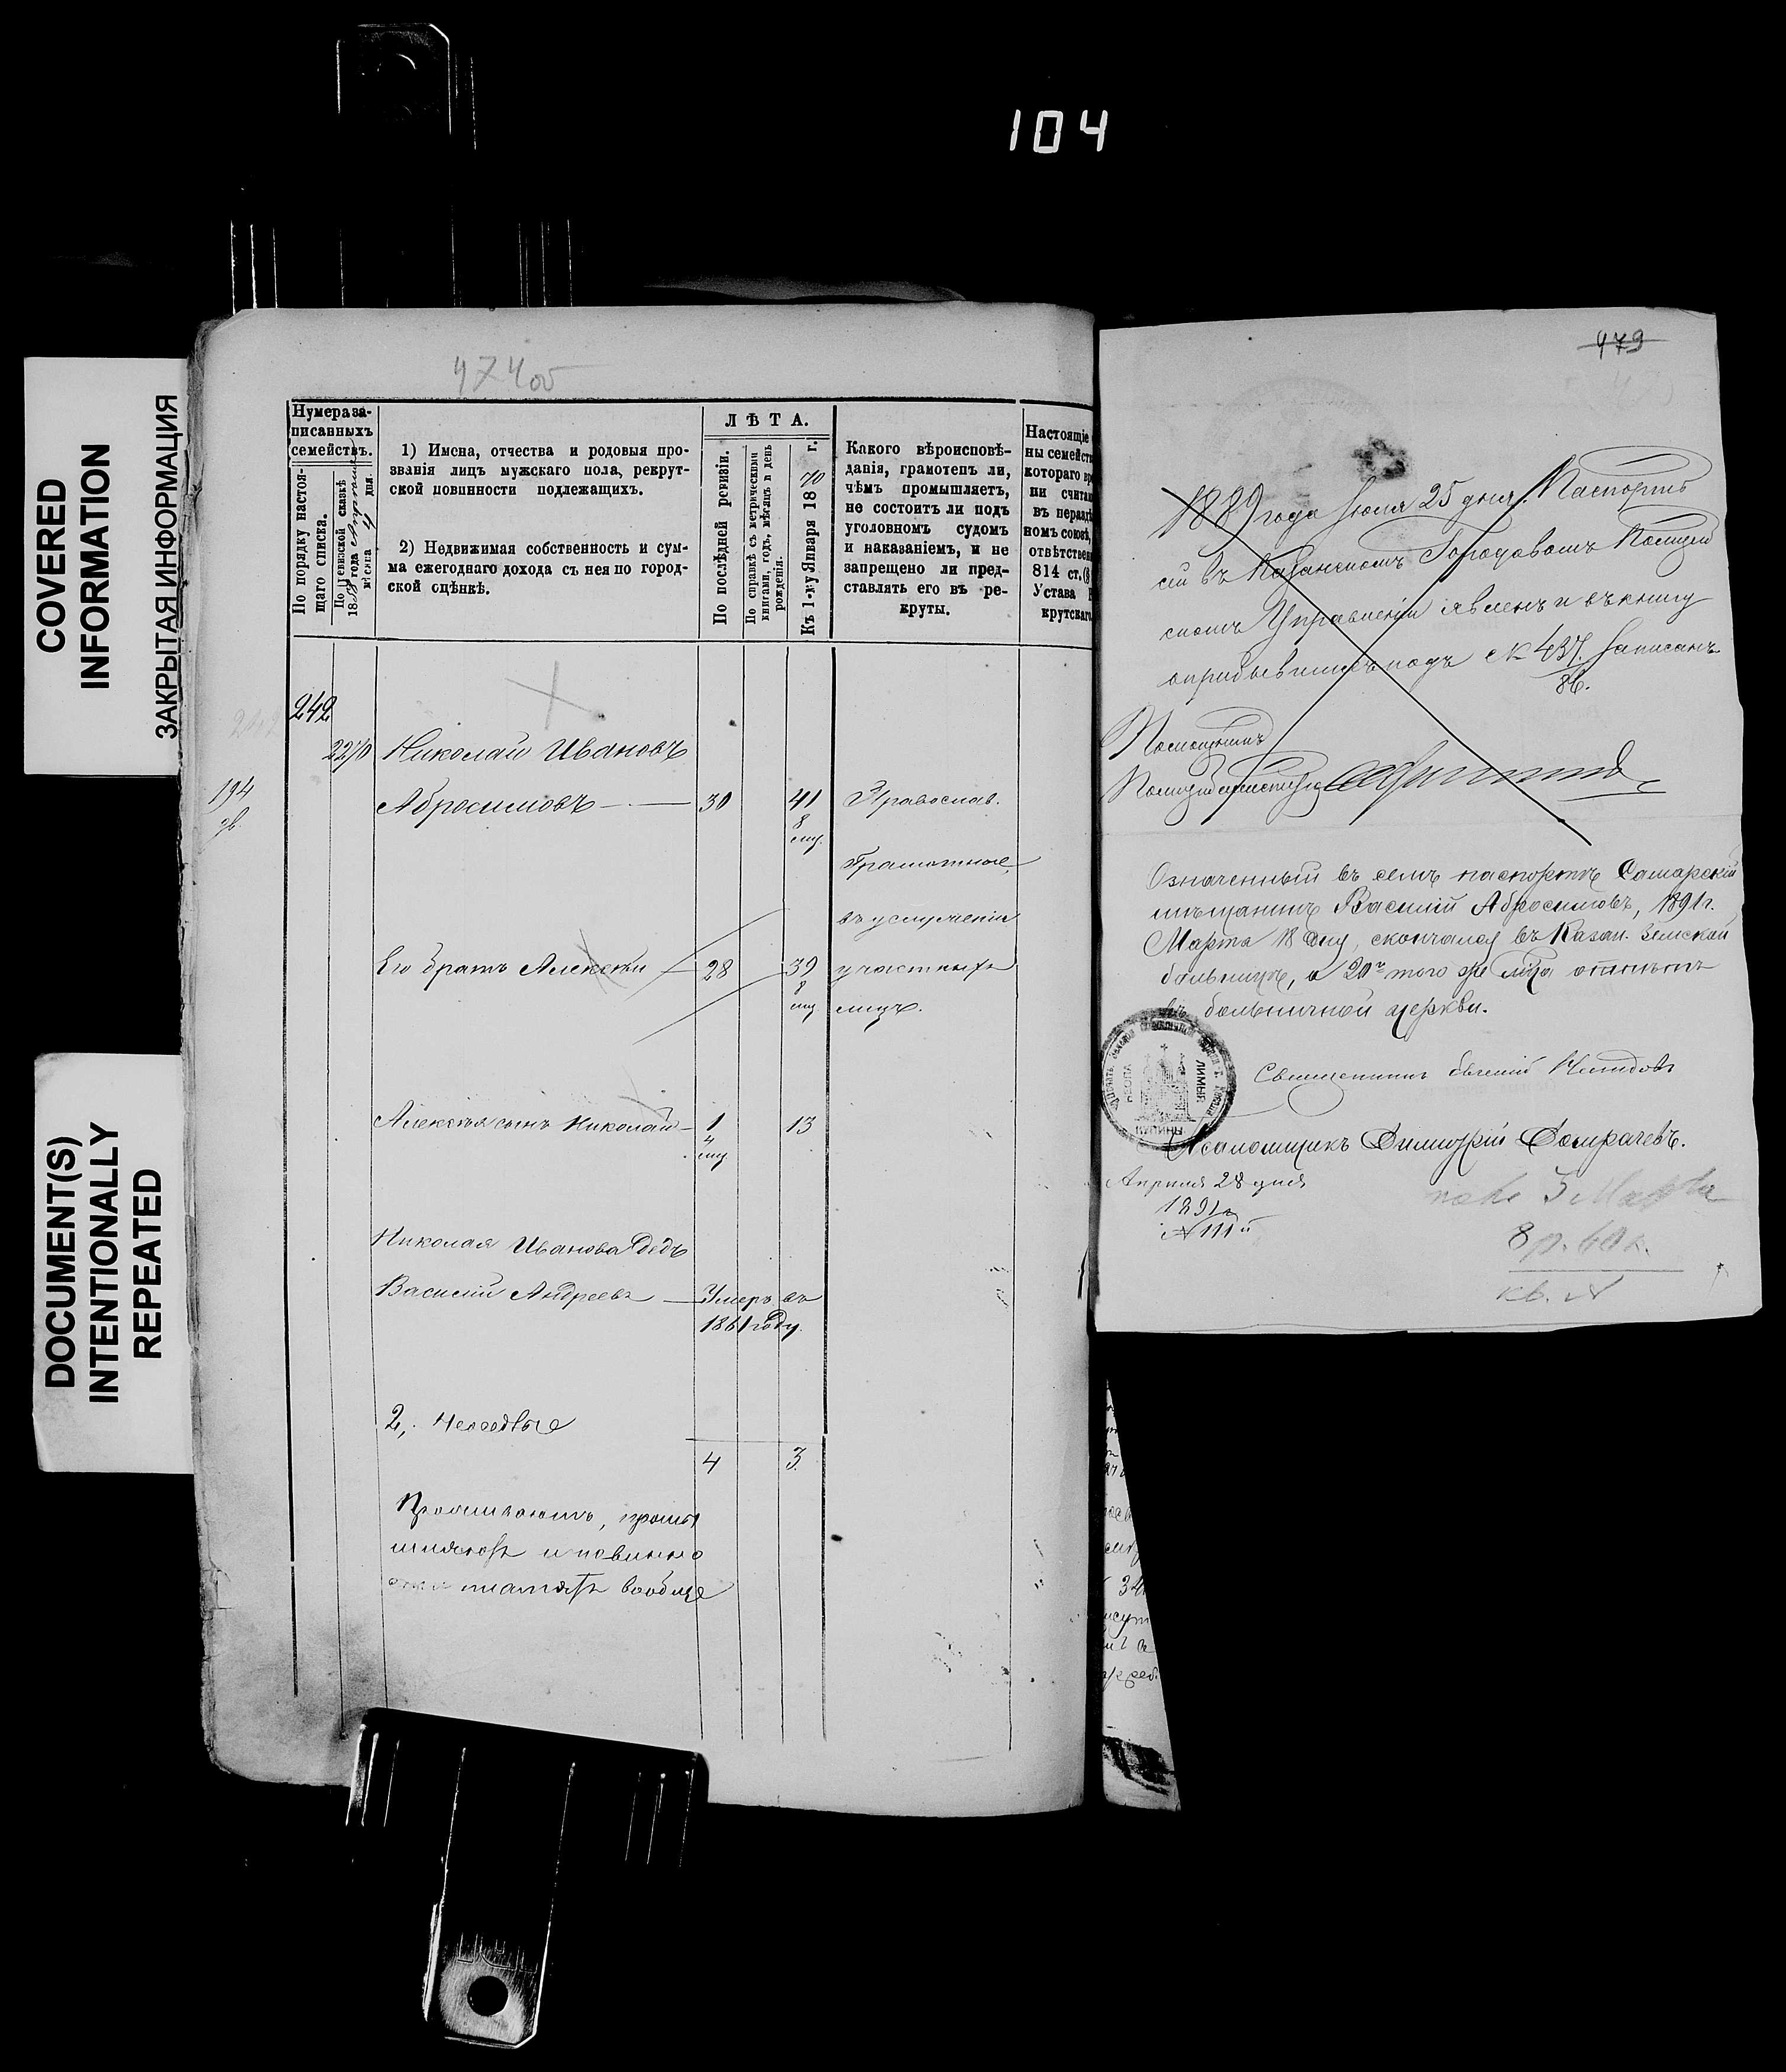 104
COVERED
INFORMATION
ЗАКРЫТАЯ ИНФОРМАЦИЯ
DOCUMENT(S)
INTENTIONALLY
REPEATED
474 об
Нумера за-
писанныхъ
семействъ.
По порядку настоя-
щаго списка.
По ревизской сказкѣ
1858 года
мѣсяца 4 дня.
1) Имена, отчества и родовыя про-
званія лицъ мужскаго пола, рекрут-
ской повинности подлежащихъ.
2) Недвижимая собственность и сум-
ма ежегоднаго дохода съ нея по город-
ской оцѣнкѣ.
ЛѢТА.
По послѣдней ревизіи.
По справкѣ съ метрическими
книгами, годъ, мѣсяцъ и день
рожденія.
Къ 1-му Января 1870 г.
Какого вѣроисповѣ-
данія, грамотенъ ли,
чѣмъ промышляетъ,
не состоитъ ли подъ
уголовномъ судомъ
и наказаніемъ, и не
запрещено ли пред-
ставлять его въ ре-
круты.
Настоящіе
ны семейст
котораго вр
ни счита
въ нераздѣ
номъ союзѣ,
отвѣтствен
814 ст. (§
Устава Р
крутскаго
242
2270 Николай Ивановъ
194
Абросимовъ — 30 41 Православ.
8
мц.
Грамотные,
въ услуженіи
Его братъ Алексѣй — 28 39 у частныхъ
8
мц. лицъ.
Алексѣя сынъ Николай — 1 13
4
мц
Николая Иванова дядь
Василій Андреевъ — Умеръ въ
1861 году.
2,
4 3.
Проживаютъ, промы
шляютъ и повинно
сти платятъ вообще
479
1889 года Іюля 25 дня. Паспортъ
сей въ Казанскомъ Городовомъ Полицей
скомъ Управленіи явленъ и въ книгу
о прибывшихъ подъ № 437. записанъ
86.
Помощникъ
Полиціймейстера
Означенный въ семъ паспортѣ Самарскій
мѣщанинъ Василій Абросимовъ, 1891 г.
Марта 18 дня, скончался въ Казан. земской
больницѣ, а 20го того же м-ца отпѣтъ
въ больничной церкви.
Священникъ Евгеній
Псаломщикъ Димитрій Домрачевъ.
Апрѣля 28 дня
1891 г.
№ 111й
5 Марта
8 р. 60 к.
кв. №